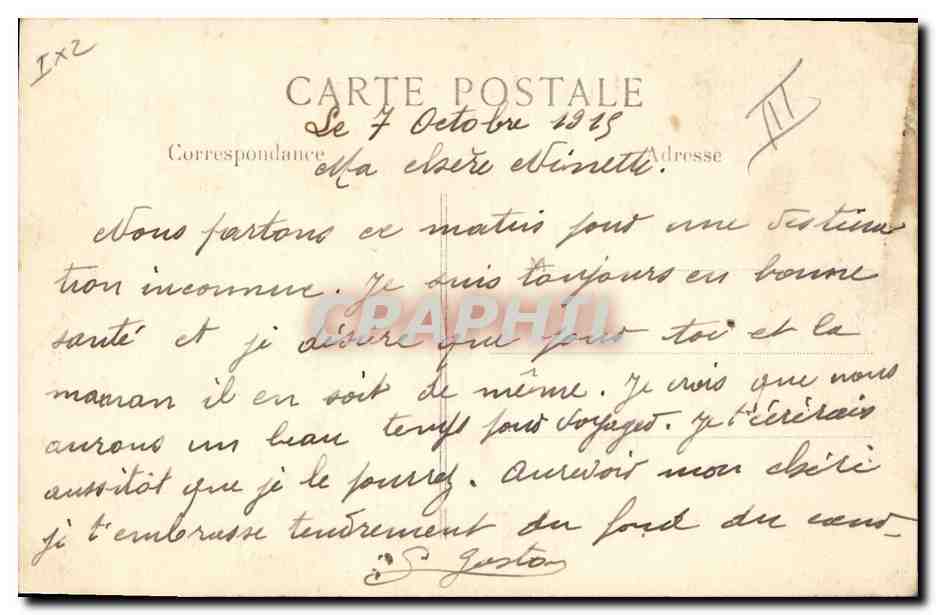 I x 2
III
CARTE POSTALE
Le 7 Octobre 1915
Correspondance
Adresse
Ma chère Ninette.
Nous partons ce matin pour une destina
tion inconnue. Je suis toujours en bonne
CPAPHIL
santé et je désire que pour toi et la
maman il en soit de même. Je crois que nous
aurons un beau temps pour voyager. Je t'écrirais
aussitôt que je le pourrez. Aurevoir mon chéri
je t'embrasse tendrement du fond du coeur
Gaston